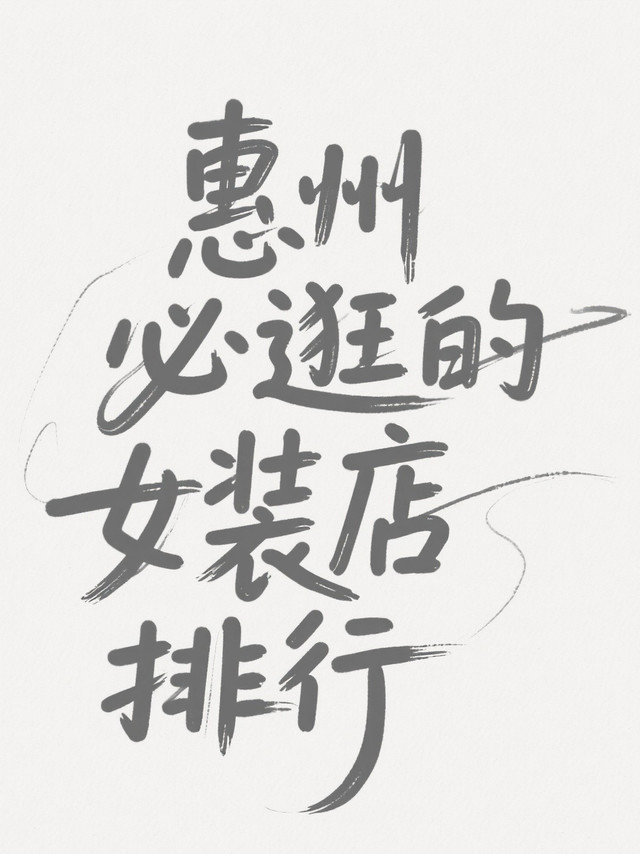 惠州
必逛的
女装店
排行